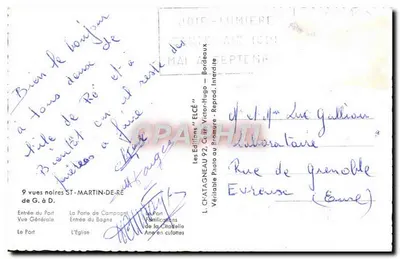 JOIE-LUMIERE
MAI A SEPTEMB
Bien le bonjour
à tous deux de
l'île de Ré et à
Bientôt car il reste des
à faire
9 vues noires ST-MARTIN-DE-RÉ
de G. à D.
Entrée du Port La Porte de Campagne Le Port
Vue Générale Entrée du Bagne Fortifications
de la Citadelle
Le Port L'Eglise Ane en culottes
Les Editions "ELCÉ"
L. CHATAGNEAU 92, Cours Victor-Hugo - Bordeaux
Véritable Photo au Bromure - Reprod. Interdite
M. et Mme Luc Gallion
Laboratoire
Rue de Grenoble
Evreux (Eure)